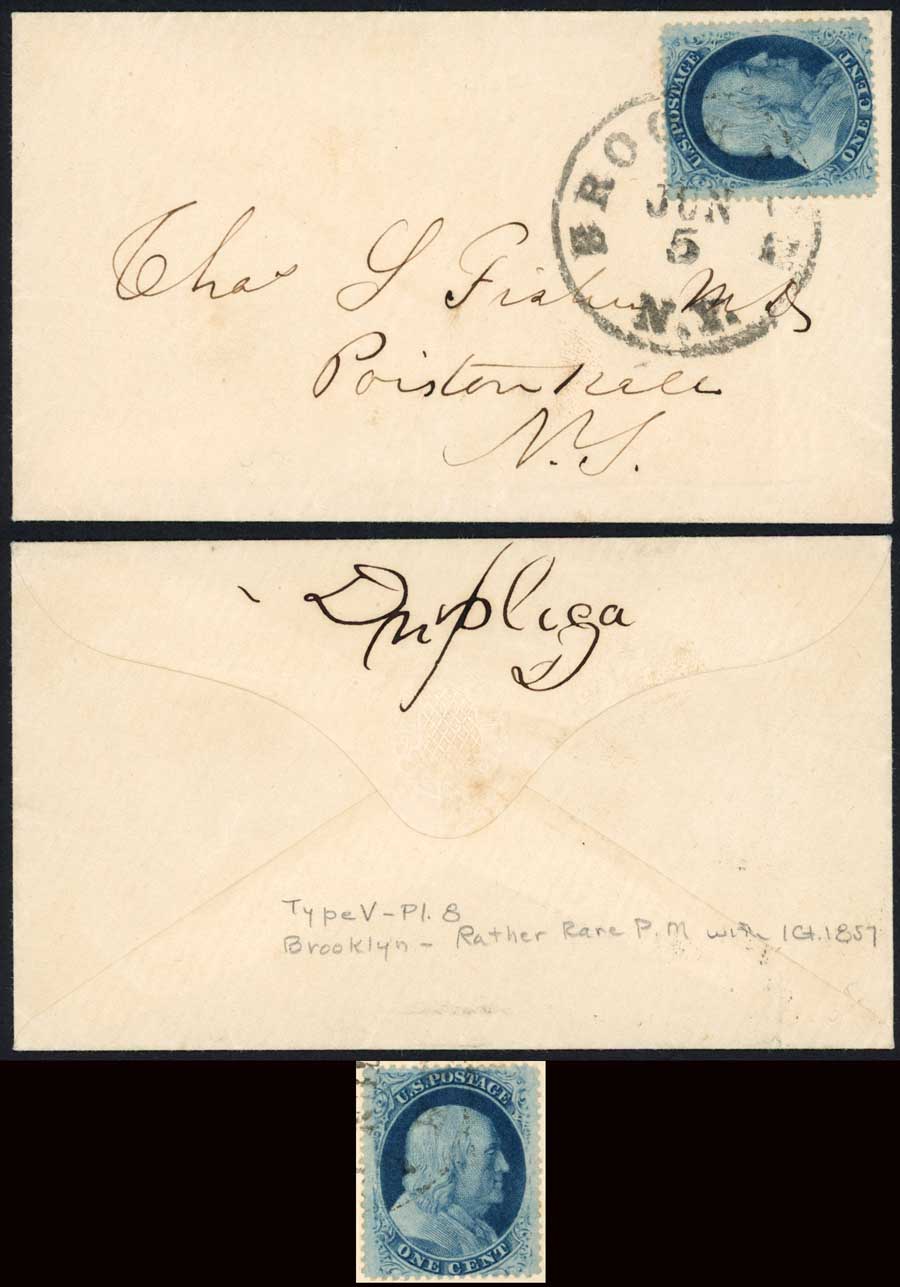 U.S. POSTAGE
ONE CENT
BROO
JUN
5
N.Y.
Chas S Fisher MD
N.Y.
Type V - Pl. 8
Brooklyn - Rather Rare P.M with 1 Ct. 1857
U.S. POSTAGE
ONE CENT